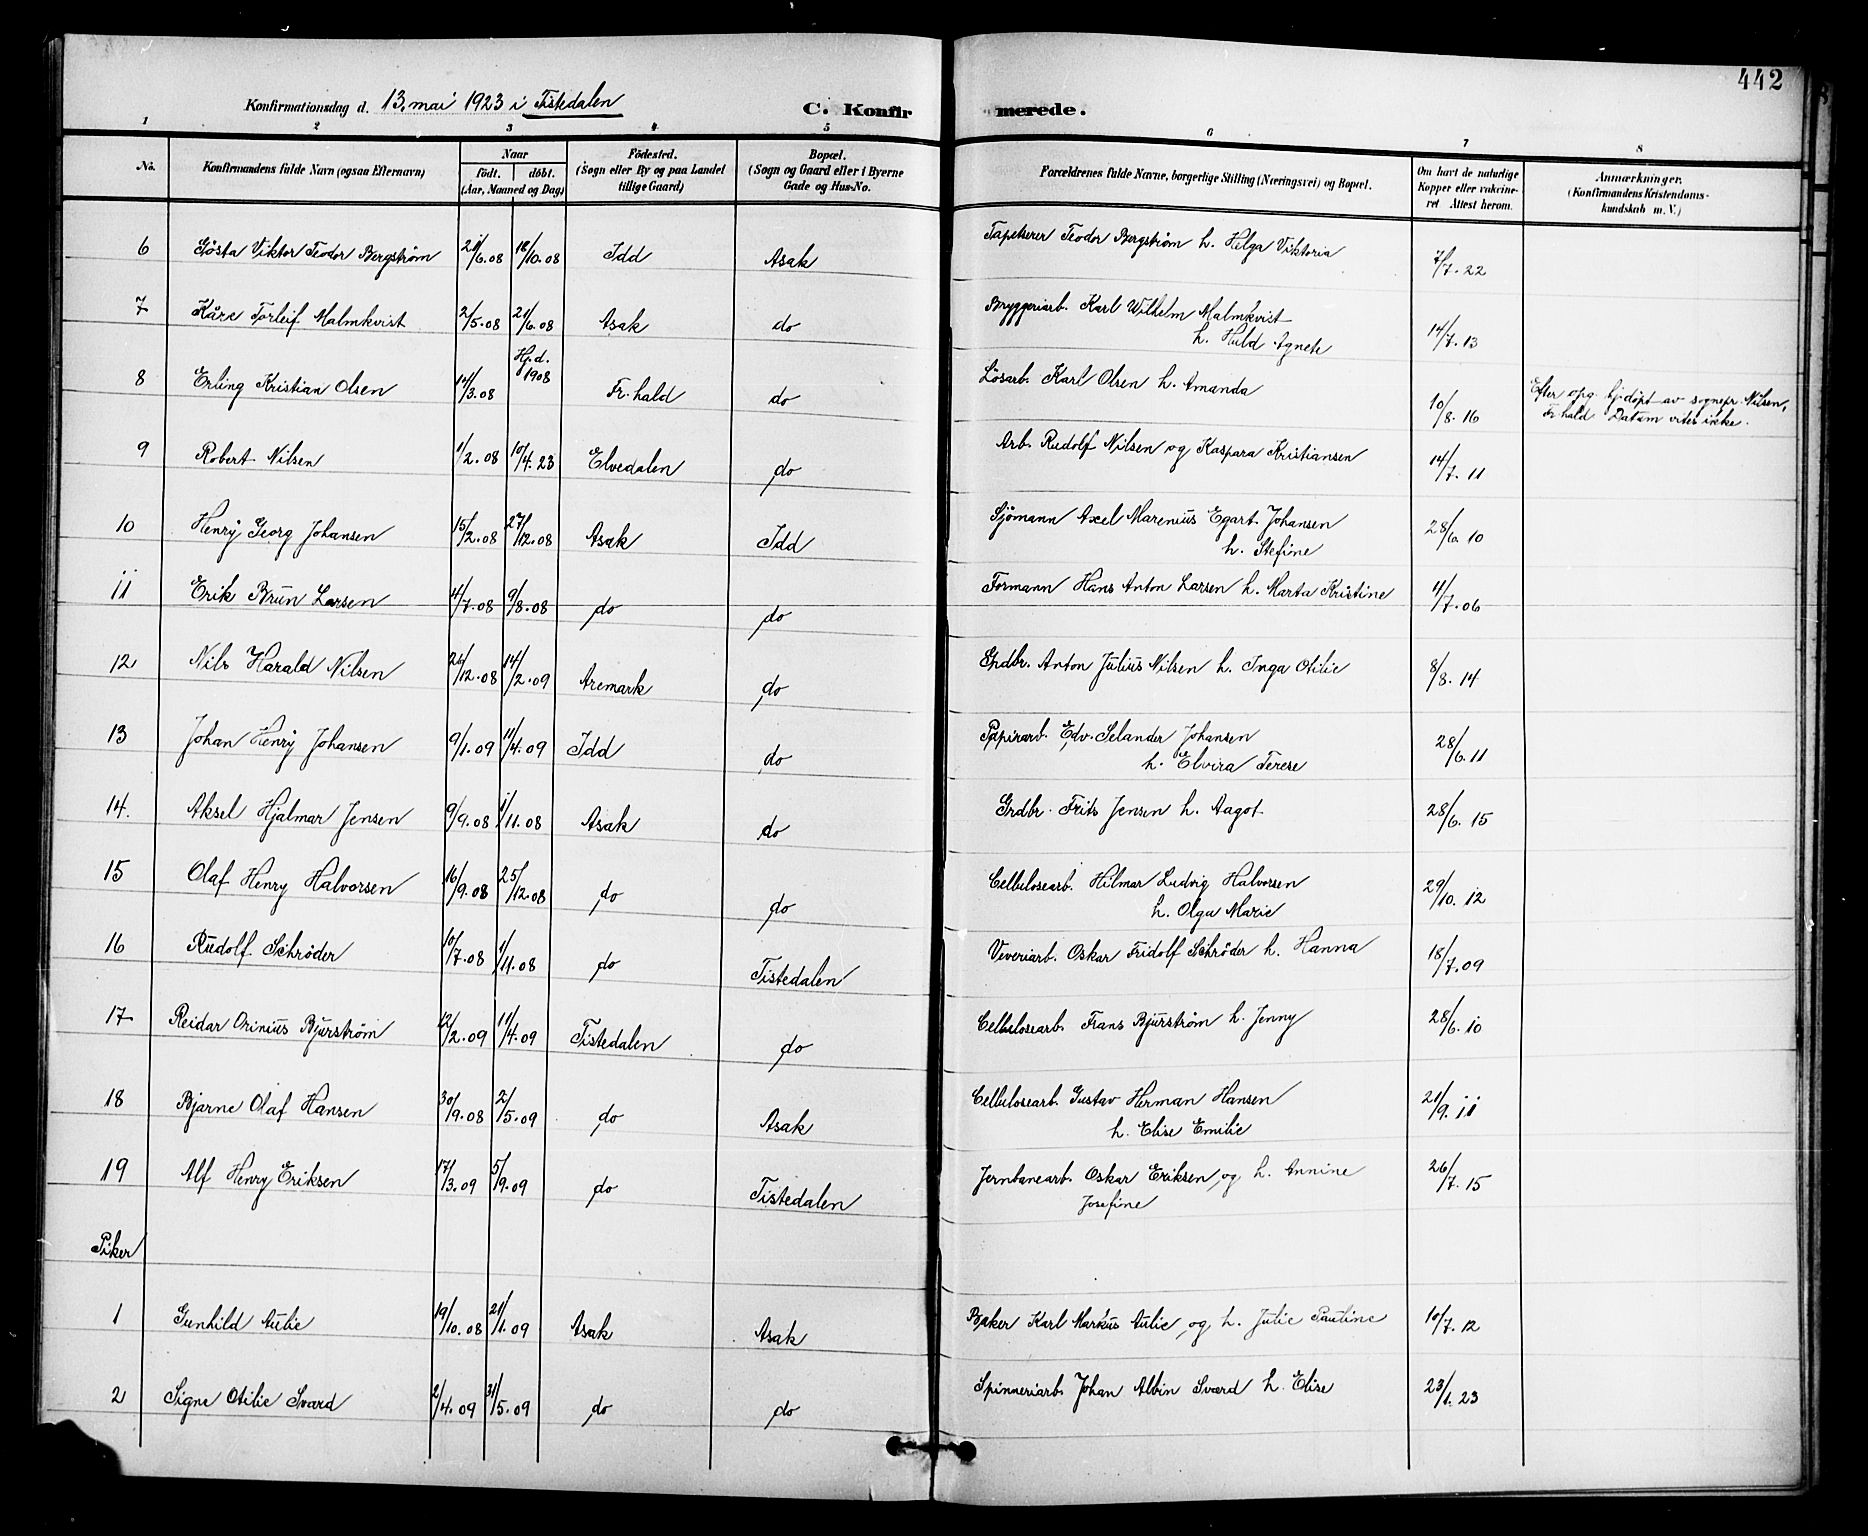 442
Konfirmationsdag d. 13. mai 1923 i Tistedalen
C. Konfirmerede.
1 2 3 4 5 6 7 8
No. Konfirmandens fulde Navn (ogsaa Efternavn) Naar födt. döbt. (Aar, Maaned og Dag) Födested. (Sogn eller By og paa Landet tillige Gaard) Bopæl. (Sogn og Gaard eller i Byerne Gade og Hus-No. Forældrenes fulde Navne, borgerlige Stilling (Næringsvei) og Bopæl. Om havt de naturlige Kopper eller vakcineret Attest herom. Anmærkninger. (Konfirmandens Kristendomskundskab m. V.)
6 Gösta Viktor Teodor Bergström 21/6.08 18/10.08 Idd Asak Tapetserer Teodor Bergström h. Helga Viktoria 7/7.22
7 Kåre Torleif Malmkvist 2/5.08 21/6.08 Asak do Bryggeriarb. Karl Wilhelm Malmkvist
h. Huld Agnete 14/7.13
8 Erling Kristian Olsen 14/3.08 Hj.d. 1908 Fr.hald do Lösarb. Karl Olsen h. Amanda 10/8.16 Efter opg. hj.döpt av sognepr. Nilsen,
Fr.hald Datum vites ikke.
9 Robert Nilsen 1/2.08 10/4.23 Elvedalen do Arb. Rudolf Nilsen og Kaspara Kristiansen 14/7.11
10 Henry Georg Johansen 15/2.08 27/12.08 Asak Idd Sjömann Axel Marenius Egart Johansen
h. Stefine 28/6.10
11 Erik Brun Larsen 4/7.08 9/8.08 do do Formann Hans Anton Larsen h. Marta Kristine 11/7.06
12 Nils Harald Nilsen 26/12.08 14/2.09 Aremark do Grdbr. Anton Julius Nilsen h. Inga Otilie 8/8.14
13 Johan Henry Johansen 9/1.09 11/4.09 Idd do Papirarb. Edv. Selander Johansen
h. Elvira Terese 28/6.11
14. Aksel Hjalmar Jensen 9/9.08 1/11.08 Asak do Grdbr. Frits Jensen h. Aagot 28/6.15
15 Olaf Henry Halvorsen 16/9.08 25/12.08 do do Cellulosearb. Hilmar Ludvig Halvorsen
h. Olga Marie 29/10.12
16 Rudolf Schröder 10/7.08 1/11.08 do Tistedalen Veveriarb. Oskar Fridolf Schröder h. Hanna 18/7.09
17 Reidar Orinius Bjurström 12/2.09 11/4.09 Tistedalen do Cellulosearb. Frans Bjurström h. Jenny 28/6.10
18 Bjarne Olaf Hansen 30/9.08 2/5.09 do Asak Cellulosearb. Gustav Herman Hansen
h. Elise Emilie 21/9.11
19 Alf Henry Eriksen 17/3.09 5/9.09 do Tistedalen Jernbanearb. Oskar Eriksen og h. Annine
Josefine 26/7.15
Piker
1 Gunhild Aulie 19/10.08 21/1.09 Asak Asak Baker Karl Markus Aulie og h. Julie Pauline 10/7.12
2 Signe Otilie Svärd 2/4.09 31/5.09 do do Spinneriarb. Johan Albin Sværd h. Elise 23/1.23